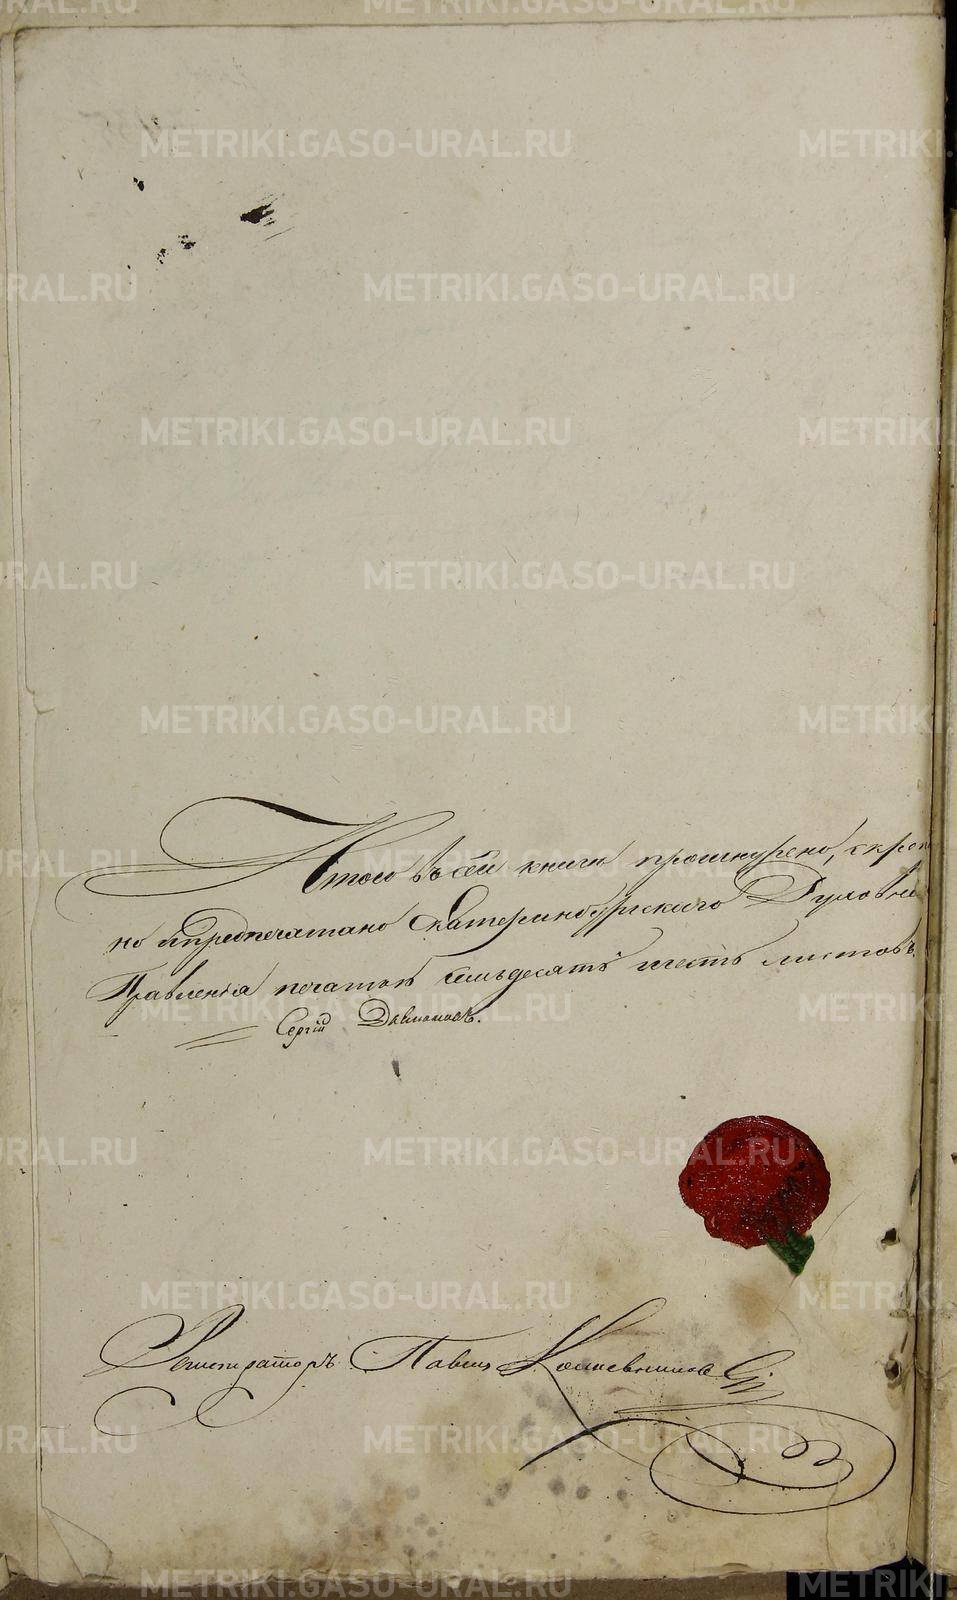 METRIKI.GASO-URAL.RU
Итого въ сей книги прошнурено, скреп
но ипредпечатано Екатеринбургскаго Духовна
Правленія печатью семьдесятъ шесть листовъ.
Сергій
Регистраторъ Павелъ